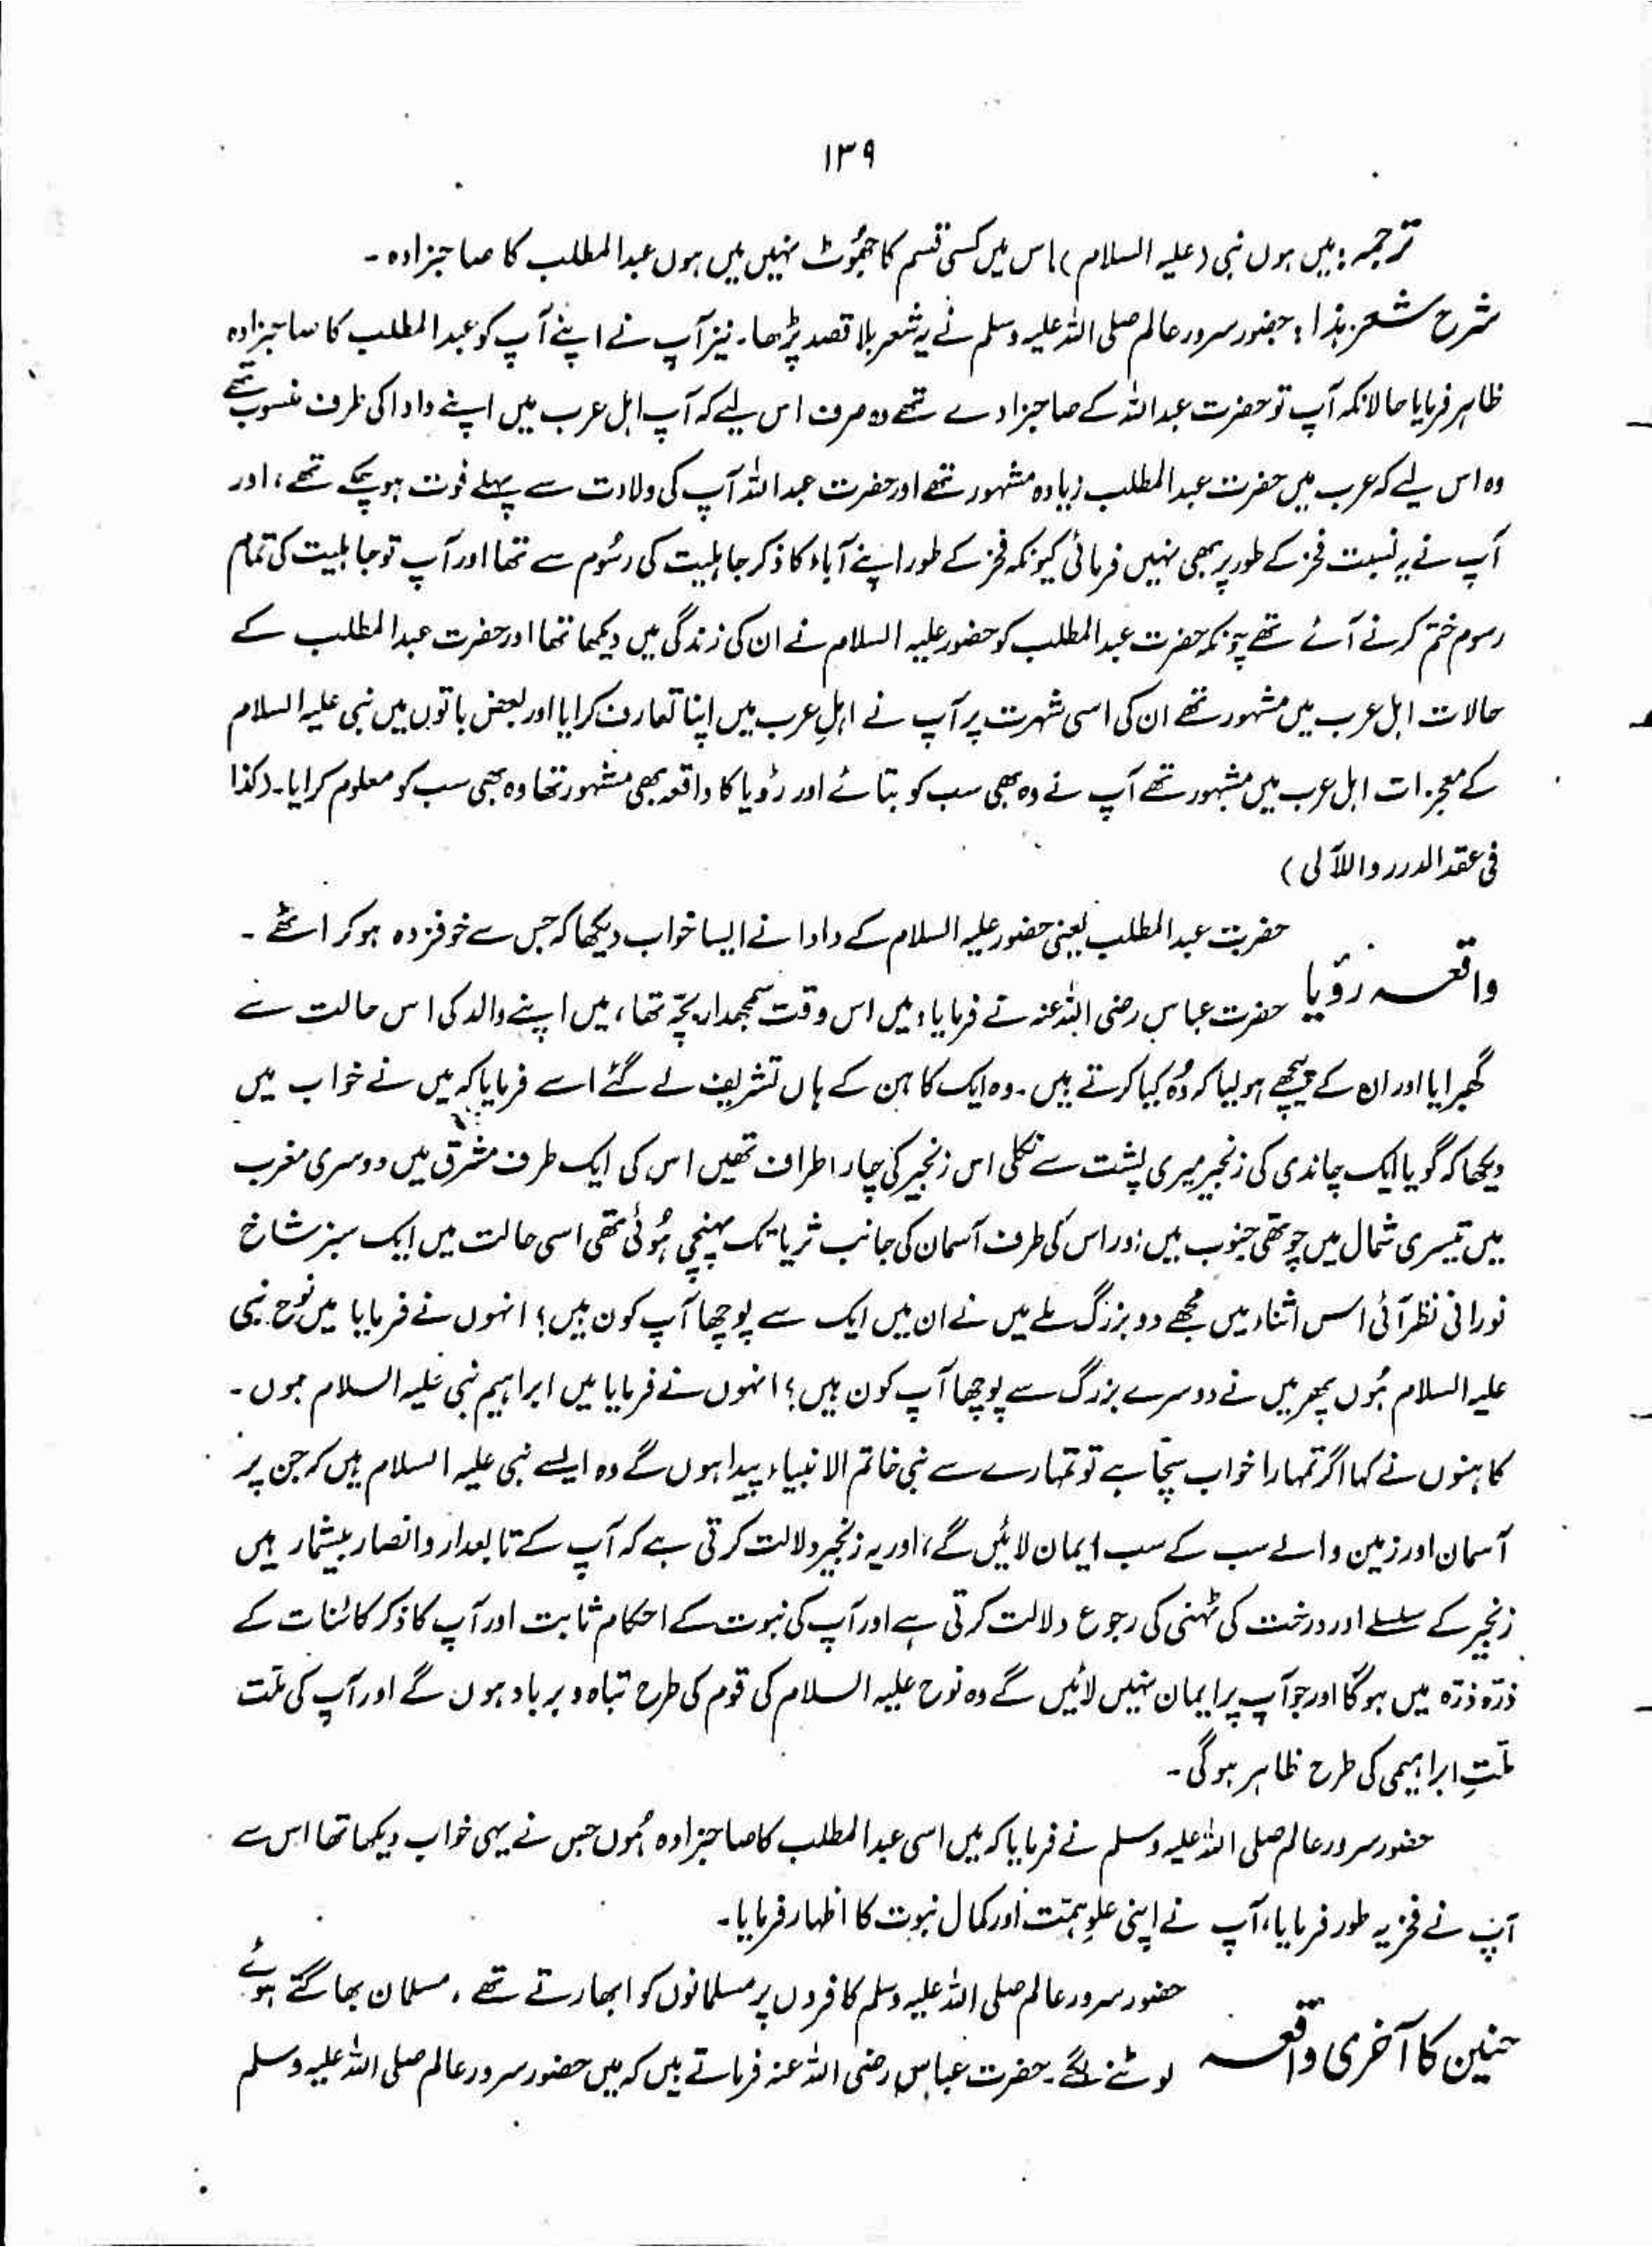 ۱۳۹
ترجمہ: میں ہوں نبی (علیہ السلام) اس میں کسی قسم کا جھُوٹ نہیں میں ہوں عبدالمطلب کا صاحبزادہ۔
شرح شعر ہذا: حضور سرور عالم صلی اللہ علیہ وسلم نے یہ شعر بلا قصد پڑھا۔ نیز آپ نے اپنے آپ کو عبدالمطلب کا صاحبزادہ
ظاہر فرمایا حالانکہ آپ تو حضرت عبداللہ کے صاحبزادے تھے وہ صرف اس لیے کہ آپ اہل عرب میں اپنے دادا کی طرف منسوب تھے
وہ اس لیے کہ عرب میں حضرت عبدالمطلب زیادہ مشہور تھے اور حضرت عبداللہ آپ کی ولادت سے پہلے فوت ہو چکے تھے، اور
آپ نے یہ نسبت فخر کے طور پر بھی نہیں فرمائی کیونکہ فخر کے طور اپنے آباء کا ذکر جاہلیت کی رسُوم سے تھا اور آپ تو جاہلیت کی تمام
رسوم ختم کرنے آئے تھے چونکہ حضرت عبدالمطلب کو حضور علیہ السلام نے ان کی زندگی میں دیکھا تھا اور حضرت عبدالمطلب کے
حالات اہل عرب میں مشہور تھے ان کی اسی شہرت پر آپ نے اہلِ عرب میں اپنا تعارف کرایا اور بعض باتوں میں نبی علیہ السلام
کے معجزات اہل عرب میں مشہور تھے آپ نے وہ بھی سب کو بتائے اور رؤیا کا واقعہ بھی مشہور تھا وہ بھی سب کو معلوم کرایا۔ (کذا
فی عقد الدرر واللآلی)
واقعہ رؤیا
حضرت عبدالمطلب یعنی حضور علیہ السلام کے دادا نے ایسا خواب دیکھا کہ جس سے خوفزدہ ہو کر اٹھے۔
حضرت عباس رضی اللہ عنہ نے فرمایا، میں اس وقت سمجھدار بچّہ تھا، میں اپنے والد کی اس حالت سے
گھبرایا اور ان کے پیچھے ہو لیا کہ وُہ کیا کرتے ہیں۔ وہ ایک کاہن کے ہاں تشریف لے گئے اسے فرمایا کہ میں نے خواب میں
دیکھا کہ گویا ایک چاندی کی زنجیر میری پشت سے نکلی اس زنجیر کی چار اطراف تھیں اس کی ایک طرف مشرق میں دوسری مغرب
میں تیسری شمال میں چوتھی جنوب میں اور اس کی طرف آسمان کی جانب ثریا تک پہنچی ہُوئی تھی اسی حالت میں ایک سبز شاخ
نورانی نظر آئی اسس اثناء میں مجھے دو بزرگ ملے میں نے ان میں ایک سے پوچھا آپ کون ہیں؟ انہوں نے فرمایا میں نوح نبی
علیہ السلام ہُوں پھر میں نے دوسرے بزرگ سے پوچھا آپ کون ہیں؟ انہوں نے فرمایا میں ابراہیم نبی علیہ السلام ہوں۔
کاہنوں نے کہا اگر تمہارا خواب سچّا ہے تو تمہارے سے نبی خاتم الانبیاء پیدا ہوں گے وہ ایسے نبی علیہ السلام ہیں کہ جن پر
آسمان اور زمین والے سب کے سب ایمان لائیں گے، اور یہ زنجیر دلالت کرتی ہے کہ آپ کے تابعدار وانصار بیشمار ہیں
زنجیر کے سلسلے اور درخت کی ٹہنی کی رجوع دلالت کرتی ہے اور آپ کی نبوت کے احکام ثابت اور آپ کا ذکر کائنات کے
ذرّہ ذرّہ میں ہوگا اور جو آپ پر ایمان نہیں لائیں گے وہ نوح علیہ السلام کی قوم کی طرح تباہ و برباد ہوں گے اور آپ کی ملّت
ملّتِ ابراہیمی کی طرح ظاہر ہوگی۔
حضور سرور عالم صلی اللہ علیہ وسلم نے فرمایا کہ میں اسی عبدالمطلب کا صاحبزادہ ہُوں جس نے یہی خواب دیکھا تھا اس سے
آپ نے فخریہ طور فرمایا، آپ نے اپنی علوِ ہمّت اور کمال نبوت کا اظہار فرمایا۔
حنین کا آخری واقعہ
حضور سرور عالم صلی اللہ علیہ وسلم کافروں پر مسلمانوں کو ابھارتے تھے، مسلمان بھاگتے ہوئے
لوٹنے لگے۔ حضرت عباس رضی اللہ عنہ فرماتے ہیں کہ میں حضور سرور عالم صلی اللہ علیہ وسلم